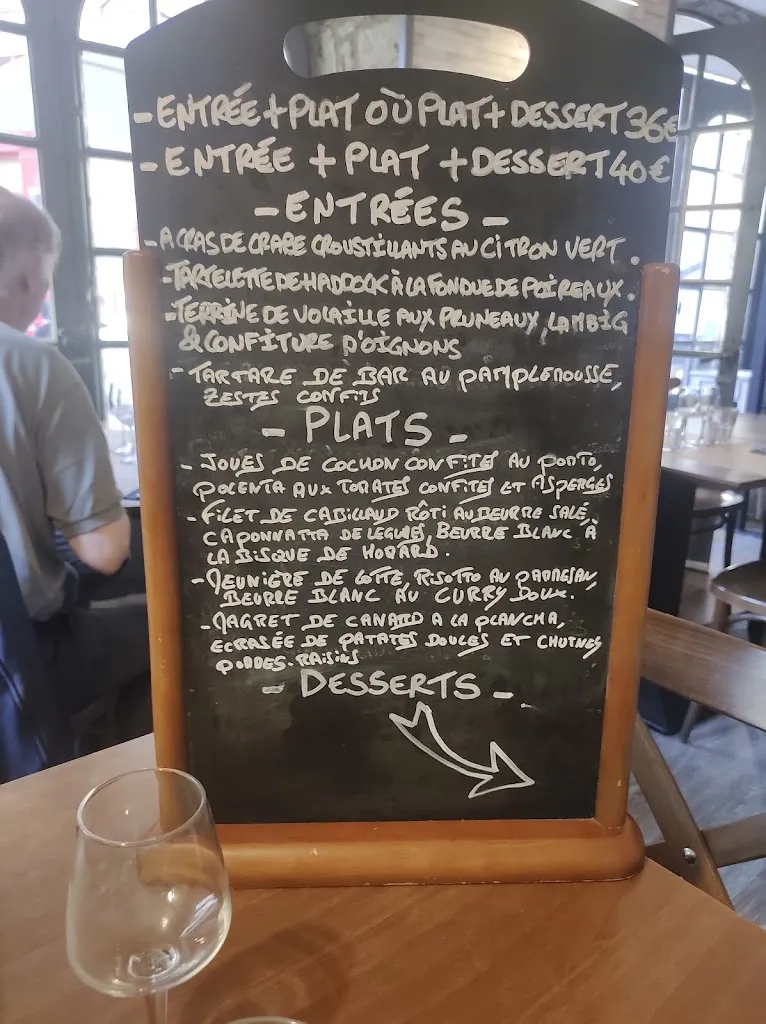 - ENTRÉE + PLAT OÙ PLAT + DESSERT 36€
- ENTRÉE + PLAT + DESSERT 40€
- ENTRÉES -
- ACRAS DE CRABE CROUSTILLANTS AU CITRON VERT.
- TARTELETTE DE HADDOCK À LA FONDUE DE POIREAUX.
- TERRINE DE VOLAILLE AUX PRUNEAUX, LAMBIG
& CONFITURE D'OIGNONS
- TARTARE DE BAR AU PAMPLEMOUSSE,
ZESTES CONFITS
- PLATS -
- JOUES DE COCHON CONFITES AU PORTO,
POLENTA AUX TOMATES CONFITES ET ASPERGES
- FILET DE CABILLAUD RÔTI AU BEURRE SALÉ,
CAPONNATTA DE LEGUMES, BEURRE BLANC À
LA BISQUE DE HOMARD.
- MEUNIÈRE DE LOTTE, RISOTTO AU PARMESAN,
BEURRE BLANC AU CURRY DOUX.
- MAGRET DE CANARD A LA PLANCHA,
ECRASÉE DE PATATES DOUCES ET CHUTNEY
POMMES-RAISINS
- DESSERTS -